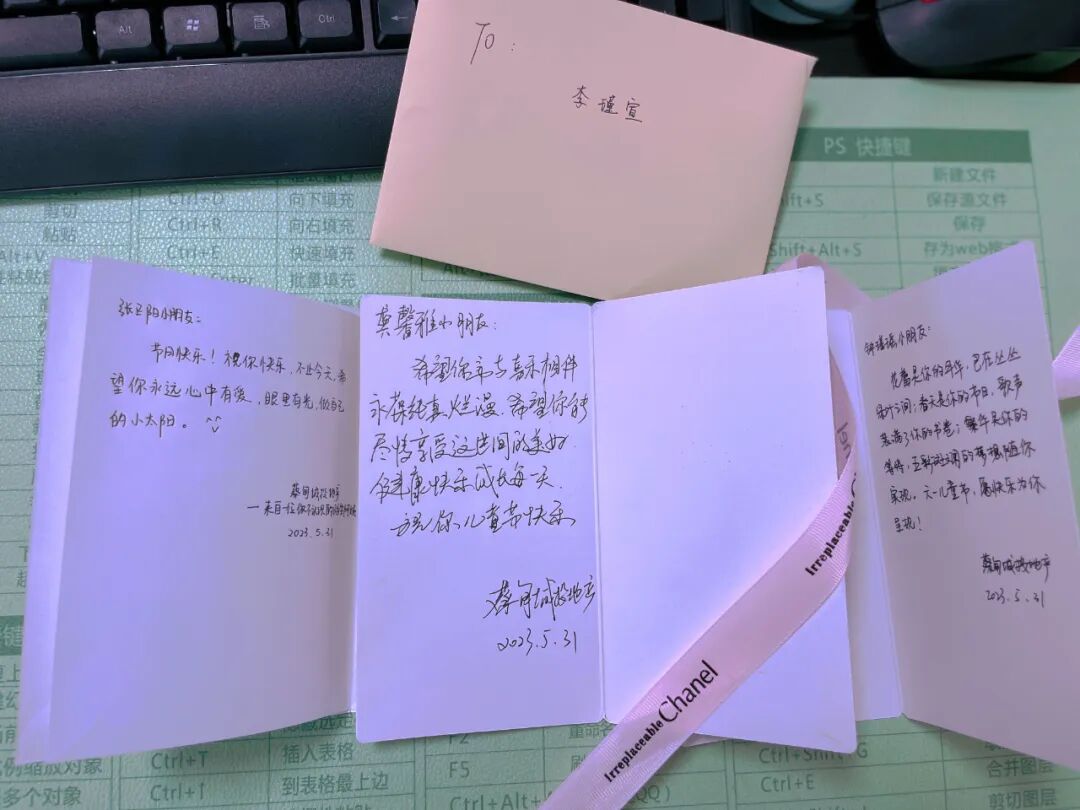 Alt
Ctrl
TO:
李瑾宣
PS 快捷键
新建文件
保存源文件
保存
Shift+Alt+S
存为web
剪切
Ctrl+D
向下填充
粘贴
Ctrl+R
向右填充
Ctrl+E
快速填充
批量填充
张卫阳小朋友:
节日快乐!祝你快乐,不止今天,希
望你永远心中有爱,眼里有光,做自己
的小太阳。
蔡甸城投地产
2023.5.31
龚馨雅小朋友:
希望你 喜乐相伴
永葆纯真烂漫.希望你能
尽情享受这世间的美好
健康快乐成长每一天.
祝你儿童节快乐
蔡甸城投地产
2023.5.31
钟瑾瑶小朋友:
花蕾是你的年华,已在丛丛
绿叶之间;春天是你的节日,歌声
装满了你的书卷;繁华是你的
等待,五彩斑斓的梦想随你
实现。六一儿童节,愿快乐为你
呈现!
蔡甸城投地产
2023.5.31
Irreplaceable
Irreplaceable Chanel
缩放对象
Ctrl+T
插入表格
F2
多个对象
Ctrl+1
到表格最上边
F5
Ctrl+Alt+
QQ)
Ctrl+Shift+G
合并图层
Ctrl+E
剪切图层